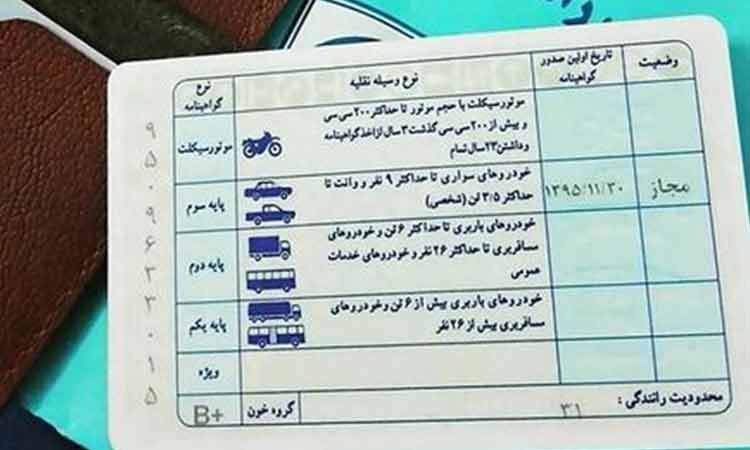 وضعیت
تاریخ اولین صدور گواهینامه
نوع وسیله نقلیه
نوع گواهینامه
موتورسیکلت با حجم موتور تا حداکثر ۲۰۰ سی سی
و بیش از ۲۰۰ سی سی گذشت ۳ سال از اخذ گواهینامه
و داشتن ۲۳ سال تمام
موتورسیکلت
مجاز
۱۳۹۵/۱۱/۳۰
خودروهای سواری تا حداکثر ۹ نفر و وانت تا
حداکثر ۳/۵ تن (شخصی)
پایه سوم
خودروهای باربری تا حداکثر ۶ تن و خودروهای
مسافربری تا حداکثر ۲۶ نفر و خودروهای خدمات
عمومی
پایه دوم
خودروهای باربری بیش از ۶ تن و خودروهای
مسافربری بیش از ۲۶ نفر
پایه یکم
ویژه
محدودیت رانندگی :
۳۱
گروه خون
B+
۹۵۰۹۶۳۳۰۱۵